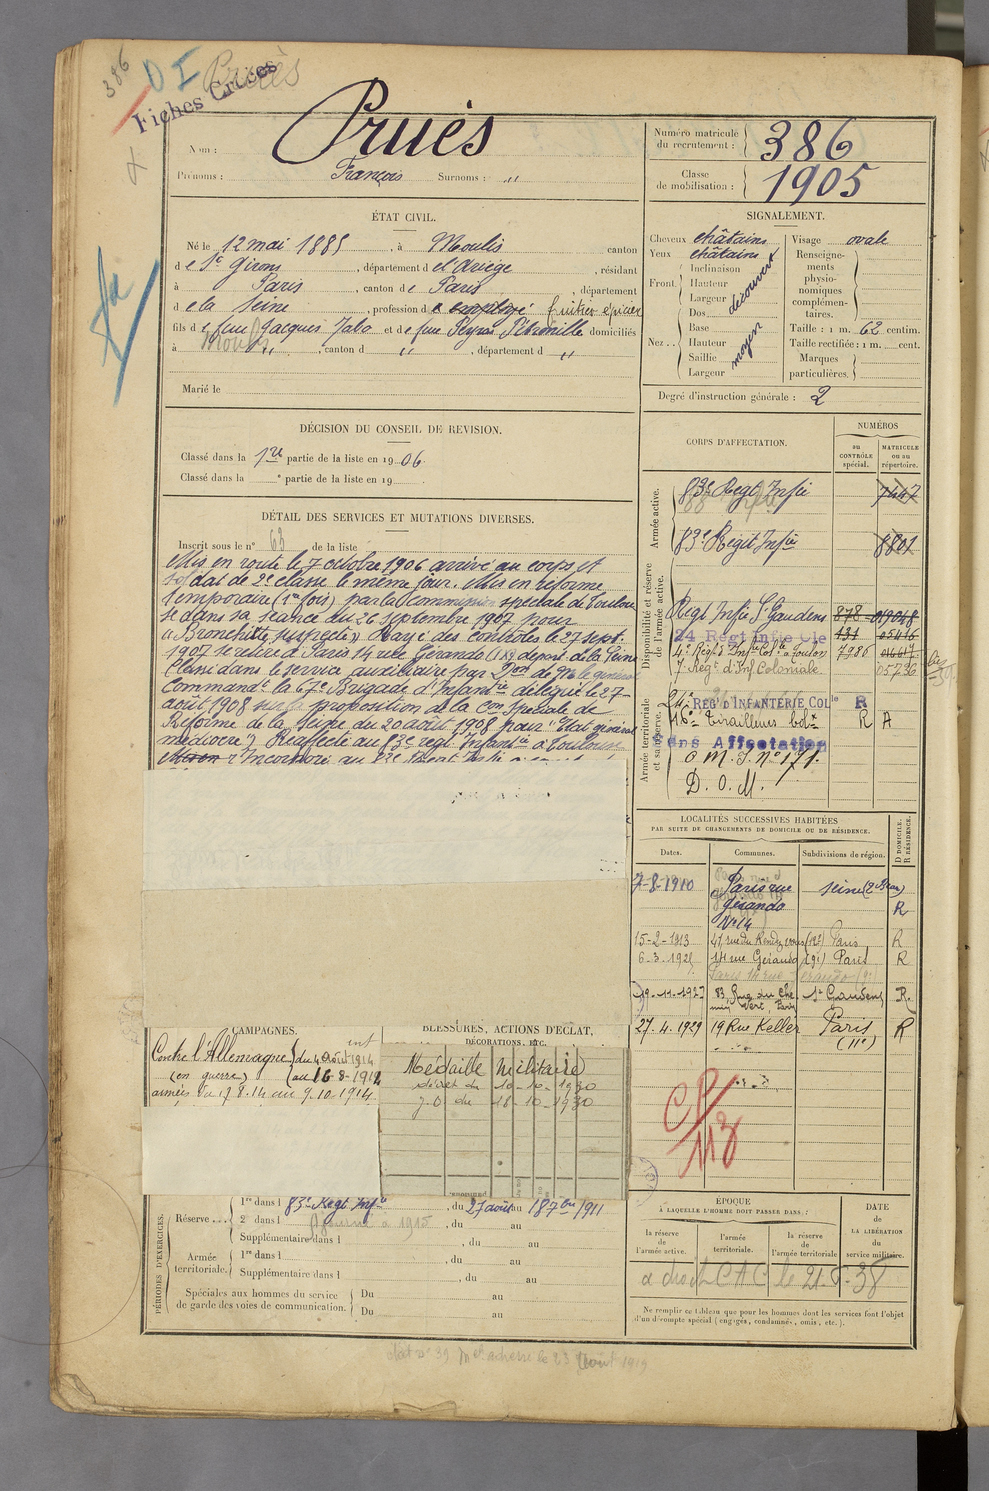 386
D I Pruès
Fiches Croisées
Nom : Pruès
Prénoms : François Surnoms : "
Numéro matricule du recrutement : 386
Classe de mobilisation : 1905
ÉTAT CIVIL.
Né le 12 mai 1885, à Moulis canton
de St Girons, département de l'Ariège, résidant
à Paris, canton de Paris, département
de la Seine, profession de employé fruitier épicier
fils de feu Jacques Jalo et de feue Peyras Pétronille domiciliés
à Moulis ", canton d ", département d "
Marié le
SIGNALEMENT.
Cheveux châtains
Yeux châtains
Front. Inclinaison
Hauteur
Largeur découvert
Nez .. Dos
Base
Hauteur moyen
Saillie
Largeur
Visage ovale
Renseignements physionomiques complémentaires.
Taille : 1 m. 62 centim.
Taille rectifiée : 1 m. cent.
Marques particulières.
Degré d'instruction générale : 2
DÉCISION DU CONSEIL DE REVISION.
Classé dans la 1re partie de la liste en 1906.
Classé dans la e partie de la liste en 19 .
DÉTAIL DES SERVICES ET MUTATIONS DIVERSES.
Inscrit sous le n° 63 de la liste
Mis en route le 7 octobre 1906 arrivé au corps et
soldat de 2e classe le même jour. Mis en réforme
temporaire (1re fois) par la Commission spéciale de Toulouse
de dans sa séance du 26 septembre 1907 pour
"Bronchite suspecte" Rayé des contrôles le 27 sept.
1907 se retire à Paris 14 rue Gérando (IX) dépt de la Seine
Classé dans le service auxiliaire par Don de Mr le général
Command. la 67e Brigade d'Infantie délégué le 27
août 1908 sur la proposition de la Con spéciale de
Réforme de la Seine du 20 août 1908 pour "Etat général
médiocre". Réaffecté au 83e régt Infantie à Toulouse
CORPS D'AFFECTATION.
NUMÉROS
au CONTRÔLE spécial.
MATRICULE ou au répertoire.
Armée active.
83e Regt Infie 7447
83e Régit Infie 8801
Disponibilité et réserve de l'armée active.
Regt Infie St Gaudens 878 019048
24 Régt Infie Cle 131 05416
4e Régt d'Infie Cole à Toulon 7986
7e Régt d'Inf Coloniale 05736
Armée territoriale et sa réserve.
21e REGt D'INFANTERIE COLle R
16e Tirailleurs R A
Sans Affectation
O M. I. N° 171.
D. O. M.
LOCALITÉS SUCCESSIVES HABITÉES
PAR SUITE DE CHANGEMENTS DE DOMICILE OU DE RÉSIDENCE.
D DOMICILE. R RÉSIDENCE.
Dates. Communes. Subdivisions de région.
7-8-1910 Paris rue Gérando N° 14 Seine (2e Bur) R
15-2-1913 47, rue du Rendez vous (12e) Paris R
6-3-1921 14 rue Gérando (9e) Paris R
19-11-1927 83, Rue du Chemin Vert, Paris St Gaudens R.
27.4.1929 19 Rue Keller Paris (11e) R
CP/113
CAMPAGNES.
Contre l'Allemagne du 4 Août 1914
(en guerre) au 16-8-1919
armées du 17.8.14 au 7.10.1914.
BLESSURES, ACTIONS D'ÉCLAT,
DÉCORATIONS, ETC.
Médaille Militaire
décret du 10-10-1930
J.O du 18-10-1930
PÉRIODES D'EXERCICES.
Réserve ... 1re dans l 83e Regt Infie, du 27 août au 18 7bre 1911
2e dans l , du au
Supplémentaire dans l , du au
Armée territoriale. 1re dans l , du au
Supplémentaire dans l , du au
Spéciales aux hommes du service de garde des voies de communication. Du au
Du au
ÉPOQUE
À LAQUELLE L'HOMME DOIT PASSER DANS :
la réserve de l'armée active.
l'armée territoriale.
la réserve de l'armée territoriale
DATE DE LA LIBÉRATION du service militaire.
a droit CAC le 21.5.38
Ne remplir ce tableau que pour les hommes dont les services font l'objet
d'un décompte spécial (engagés, condamnés, omis, etc.).